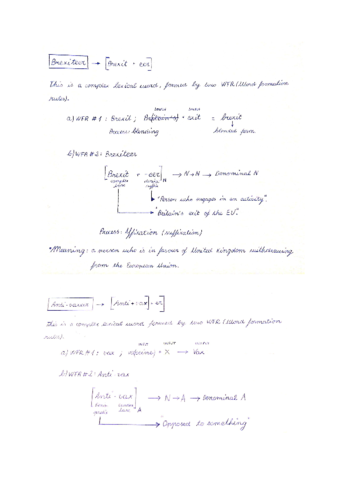 Brexiteer → [Brexit - eer]
This is a complex lexical word, formed by two WFR (Word formation
rules).
a) WFR #1: Brexit; + exit = Brexit
Process: blending blended form
b) WFR #2: Brexiteer
[Brexit + -eer]N → N→N → Denominal N
"Person who engages in an activity".
"Britain's exit of the EU".
Process: Affixation (suffixation)
*Meaning: a person who is in favour of United Kingdom withdrawing
from the European Union.
Anti-vaxxer → [Anti + vax] - er]
This is a complex lexical word formed by two WFR (Word formation
rules).
a) WFR #1: vax; + X → Vax
b) WFR #2: Anti-vax
[Anti - vax]A → N→A → Denominal A
"Opposed to something"